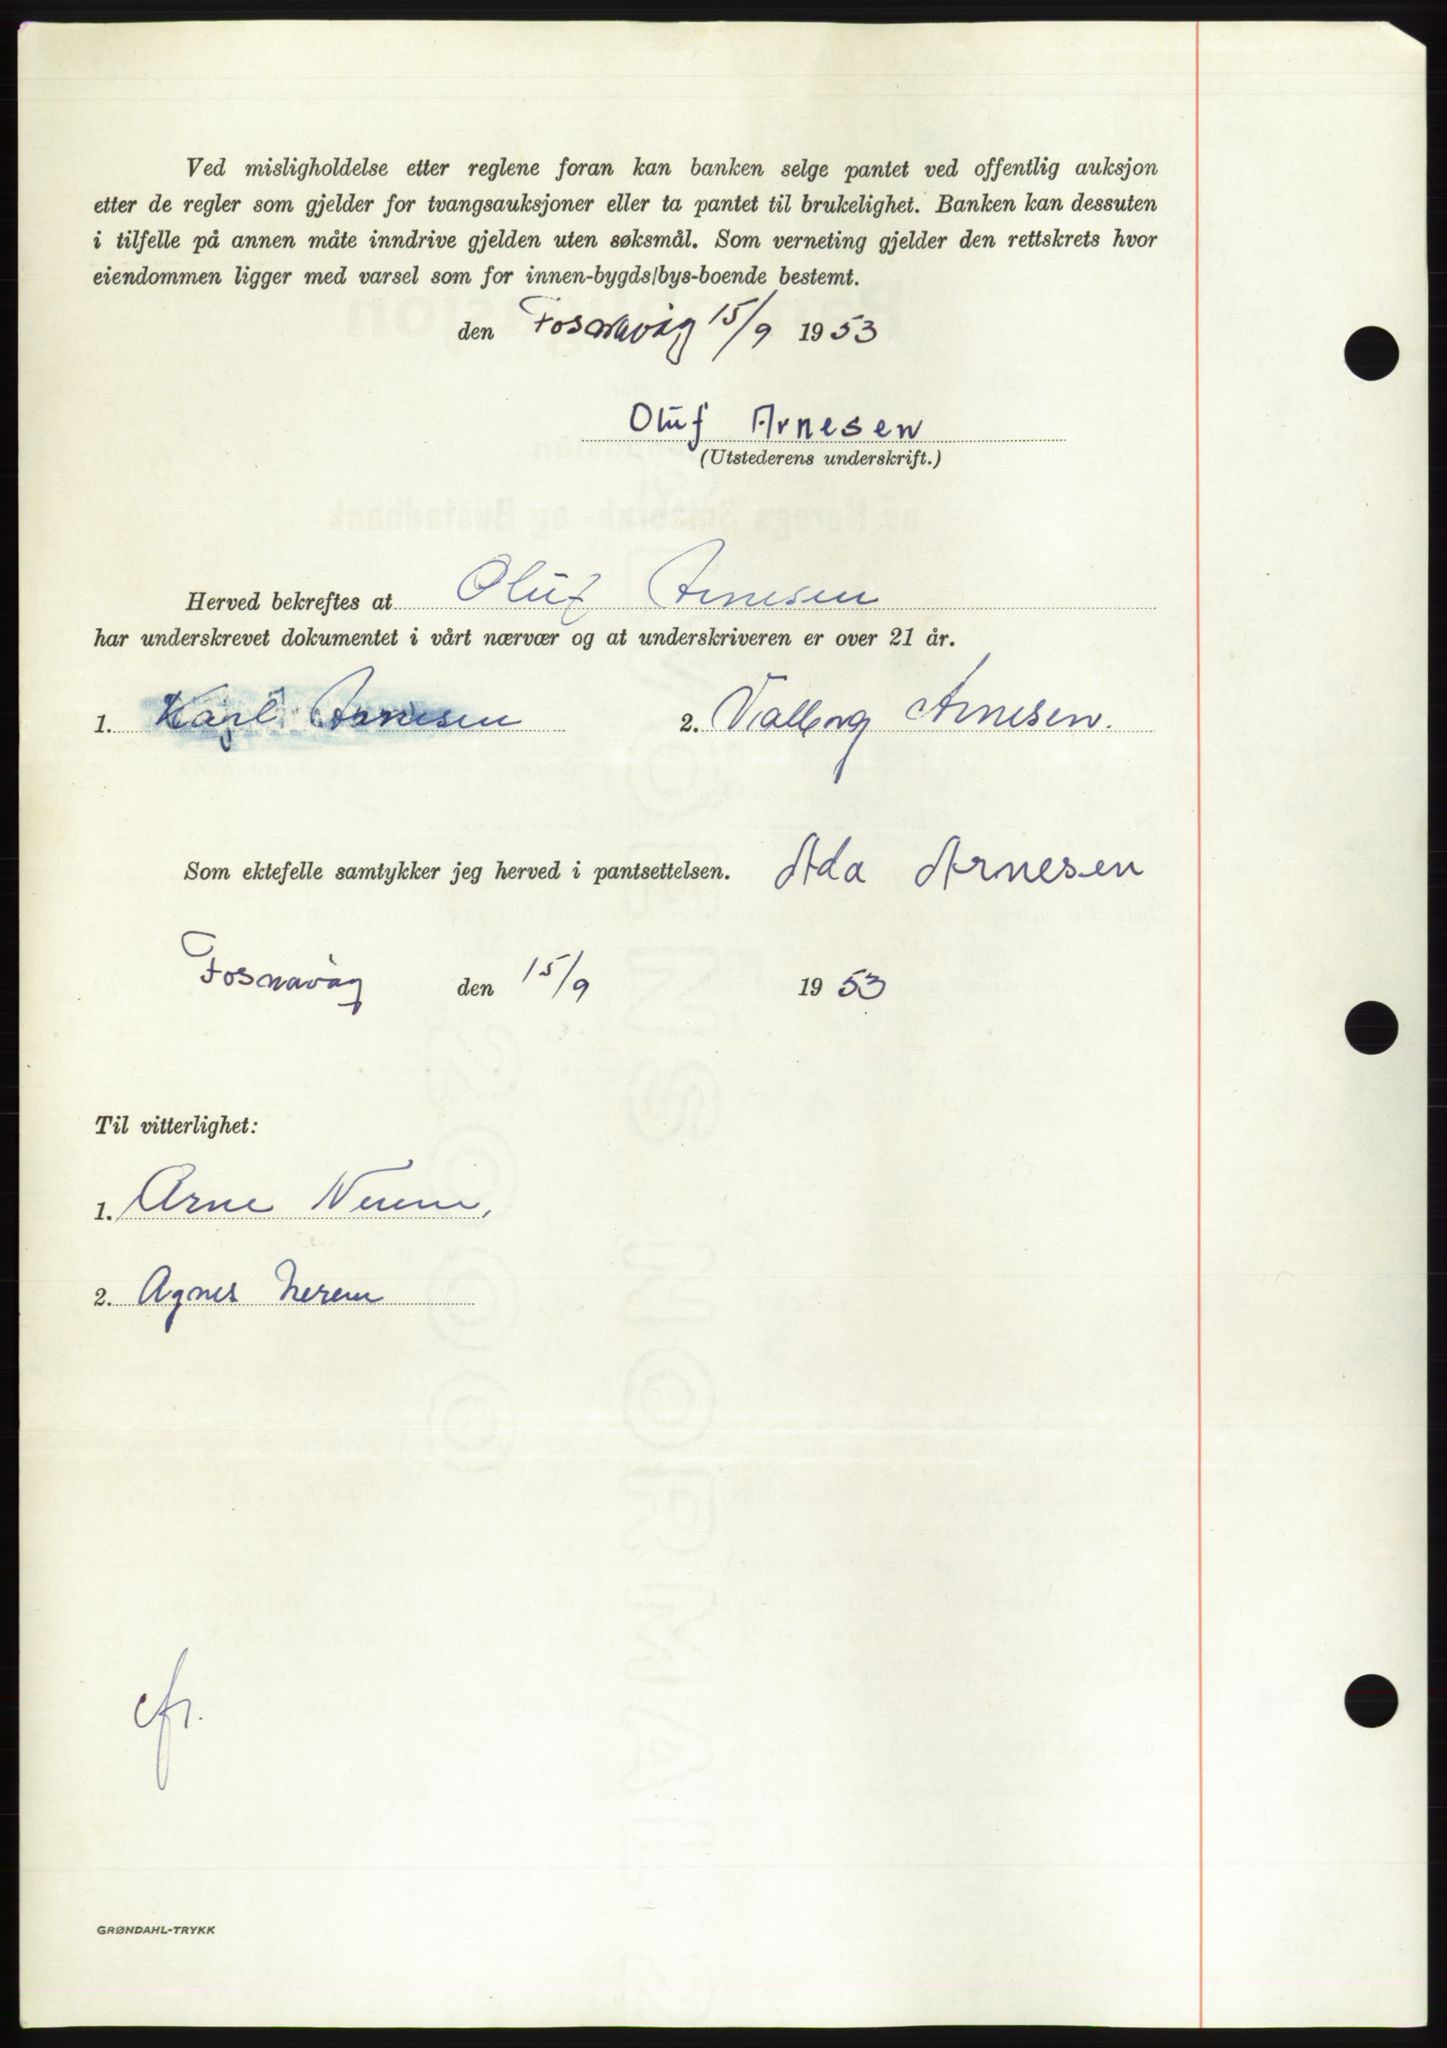 Ved misligholdelse etter reglene foran kan banken selge pantet ved offentlig auksjon
etter de regler som gjelder for tvangsauksjoner eller ta pantet til brukelighet. Banken kan dessuten
i tilfelle på annen måte inndrive gjelden uten søksmål. Som verneting gjelder den rettskrets hvor
eiendommen ligger med varsel som for innen-bygds/bys-boende bestemt.
den Fosnavåg 15/9 1953
Oluf Arnesen
(Utstederens underskrift.)
Herved bekreftes at Oluf Arnesen
har underskrevet dokumentet i vårt nærvær og at underskriveren er over 21 år.
1. Karl Arnesen 2. Valborg Arnesen.
Som ektefelle samtykker jeg herved i pantsettelsen. Ada Arnesen
Fosnavåg den 15/9 1953
Til vitterlighet:
1. Arne Nerem,
2. Agnes Nerem
GRØNDAHL-TRYKK